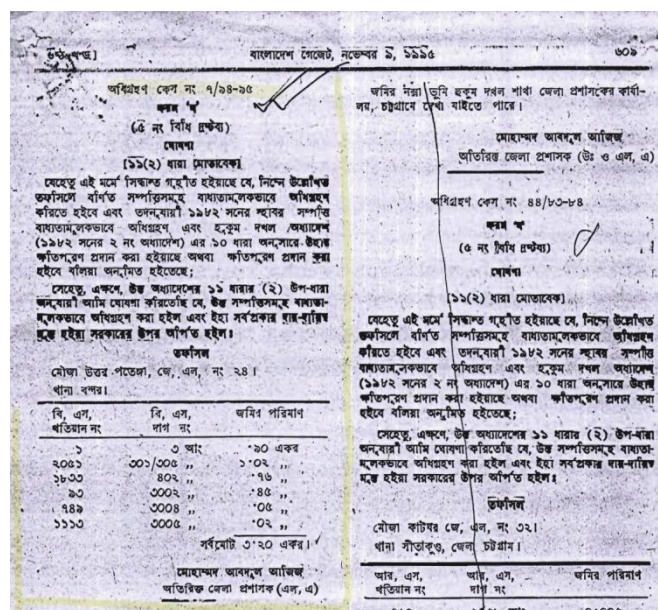 ৬ষ্ঠ খণ্ড]
বাংলাদেশ গেজেট, নভেম্বর ৯, ১৯৯৫
৬০৯
অধিগ্রহণ কেস নং ৭/৯৪-৯৫
ফরম 'ঘ'
(৫ নং বিধি দ্রষ্টব্য)
ঘোষণা
[১১(২) ধারা মোতাবেক]
যেহেতু এই মর্মে সিদ্ধান্ত গৃহীত হইয়াছে যে, নিম্নে উল্লেখিত
তফসিলে বর্ণিত সম্পত্তিসমূহ বাধ্যতামূলকভাবে অধিগ্রহণ
করিতে হইবে এবং তদনুযায়ী ১৯৮২ সনের স্থাবর সম্পত্তি
বাধ্যতামূলকভাবে অধিগ্রহণ এবং হুকুম দখল অধ্যাদেশ
(১৯৮২ সনের ২ নং অধ্যাদেশ) এর ১০ ধারা অনুসারে উহার
ক্ষতিপূরণ প্রদান করা হইয়াছে অথবা ক্ষতিপূরণ প্রদান করা
হইবে বলিয়া অনুমিত হইতেছে;
সেহেতু, এক্ষণে, উক্ত অধ্যাদেশের ১১ ধারার (২) উপ-ধারা
অনুযায়ী আমি ঘোষণা করিতেছি যে, উক্ত সম্পত্তিসমূহ বাধ্যতা-
মূলকভাবে অধিগ্রহণ করা হইল এবং ইহা সর্বপ্রকার দায়-দায়িত্ব
মুক্ত হইয়া সরকারের উপর অর্পিত হইল।
তফসিল
মৌজা উত্তর পতেঙ্গা, জে, এল, নং ২৪।
থানা বন্দর।
বি, এস, বি, এস, জমির পরিমাণ
খতিয়ান নং দাগ নং
১ ৩ আং ·৯০ একর
২০৫১ ৩০১/৩০৫ ,, ১·০২ ,,
১৮৩৩ ৪০২ ,, ·৭৬ ,,
৯৩ ৩০০২ ,, ·৪৫ ,,
৭৪৯ ৩০০৪ ,, ·০৫ ,,
১১১৩ ৩০০৫ ,, ·০২ ,,
সর্বমোট ৩·২০ একর।
মোহাম্মদ আবদুল আজিজ
অতিরিক্ত জেলা প্রশাসক (এল, এ)
জমির নক্সা ভূমি হুকুম দখল শাখা জেলা প্রশাসকের কার্যা-
লয়, চট্টগ্রামে দেখা যাইতে পারে।
মোহাম্মদ আবদুল আজিজ
অতিরিক্ত জেলা প্রশাসক (উঃ ও এল, এ)
অধিগ্রহণ কেস নং ৪৪/৮৩-৮৪
ফরম 'ঘ'
(৫ নং বিধি দ্রষ্টব্য)
ঘোষণা
[১১(২) ধারা মোতাবেক]
যেহেতু এই মর্মে সিদ্ধান্ত গৃহীত হইয়াছে যে, নিম্নে উল্লেখিত
তফসিলে বর্ণিত সম্পত্তিসমূহ বাধ্যতামূলকভাবে অধিগ্রহণ
করিতে হইবে এবং তদনুযায়ী ১৯৮২ সনের স্থাবর সম্পত্তি
বাধ্যতামূলকভাবে অধিগ্রহণ এবং হুকুম দখল অধ্যাদেশ
(১৯৮২ সনের ২ নং অধ্যাদেশ) এর ১০ ধারা অনুসারে উহার
ক্ষতিপূরণ প্রদান করা হইয়াছে অথবা ক্ষতিপূরণ প্রদান করা
হইবে বলিয়া অনুমিত হইতেছে;
সেহেতু, এক্ষণে, উক্ত অধ্যাদেশের ১১ ধারার (২) উপ-ধারা
অনুযায়ী আমি ঘোষণা করিতেছি যে, উক্ত সম্পত্তিসমূহ বাধ্যতা-
মূলকভাবে অধিগ্রহণ করা হইল এবং ইহা সর্বপ্রকার দায়-দায়িত্ব
মুক্ত হইয়া সরকারের উপর অর্পিত হইল।
তফসিল
মৌজা কাটঘর জে, এল, নং ৩২।
থানা সীতাকুণ্ড, জেলা চট্টগ্রাম।
আর, এস, আর, এস, জমির পরিমাণ
খতিয়ান নং দাগ নং